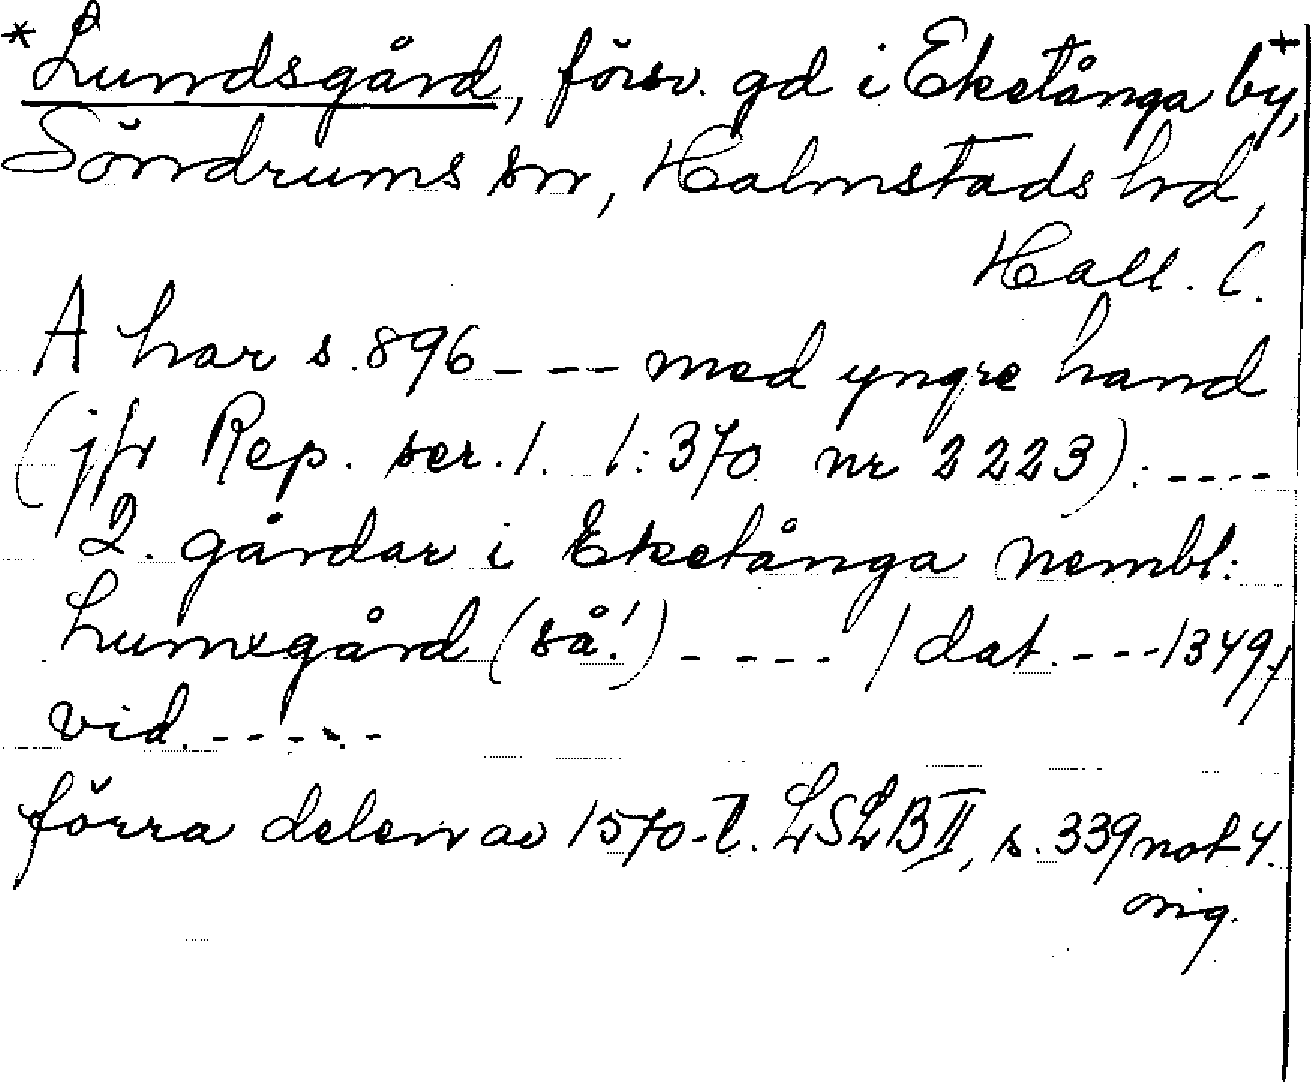 *Lundsgård, försv. gd i Eketånga by,+
Söndrums sn, Halmstads hd,
Hall. l.
A har s. 896 - - - med yngre hand
(jfr Rep. ser. 1. 1: 370 nr 2223): - - - -
2. gårdar i Eketånga nembl:
Lumxgård (så!) - - - - / dat. - - - 1349/
vid. - - - - -
förra delen av 1570-t. LSLB II, s. 339 not 4.
orig.